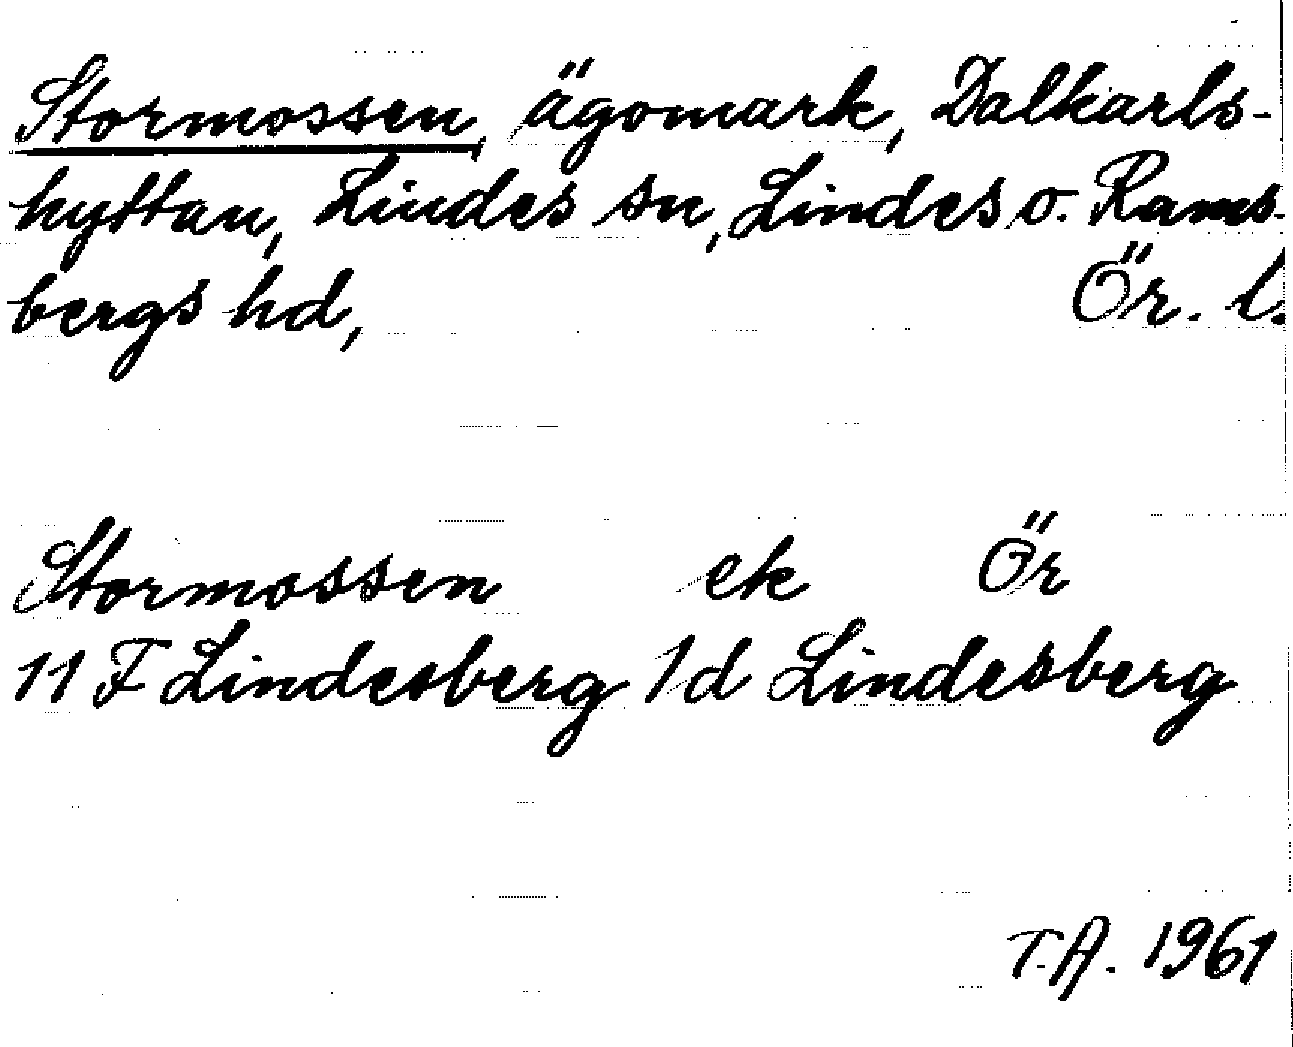 Stormossen, ägomark, Dalkarls-
hyttan, Lindes sn, Lindes o. Rams-
bergs hd, Ör. l.
Stormossen ek Ör
11 F Lindesberg 1d Lindesberg
T.A. 1961